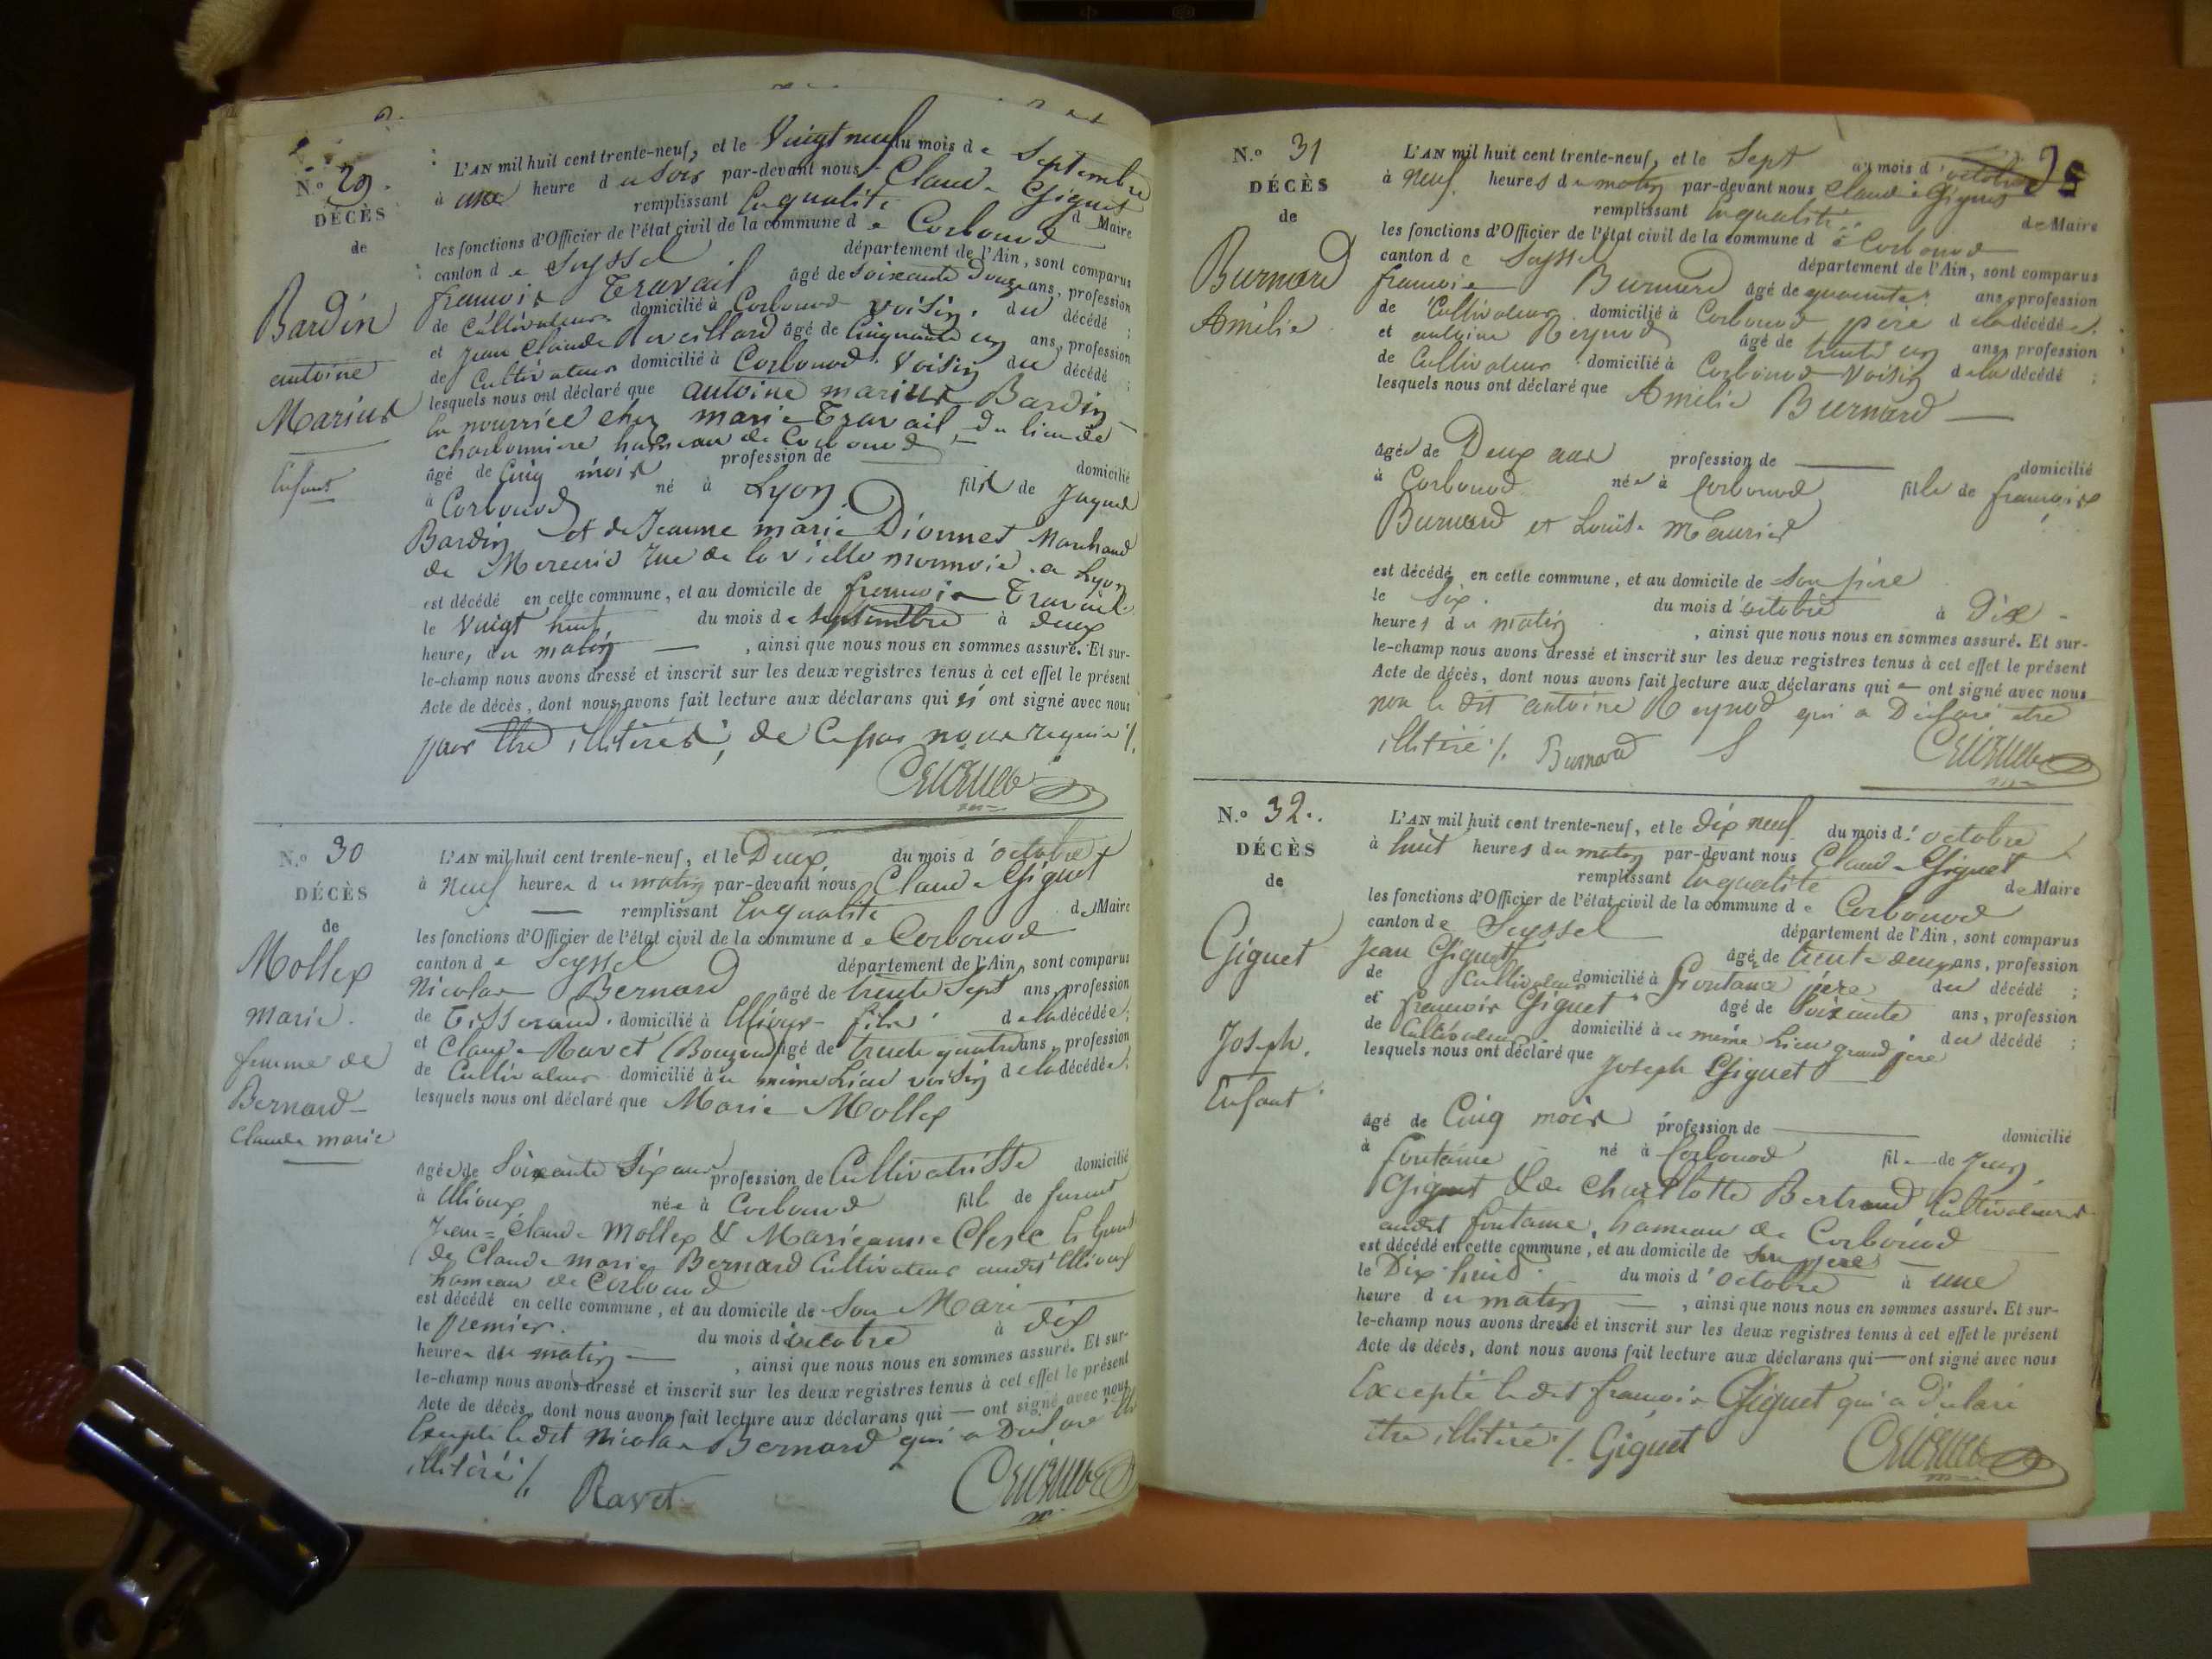 N.o 29.
DÉCÈS
de
Bardin
antoine
Marius
Enfant
L'AN mil huit cent trente-neuf, et le Vingt neuf du mois de Septembre
à une heure du Soir par-devant nous Claude Giguet
remplissant En qualité de Maire
les fonctions d'Officier de l'état civil de la commune de Corbonod
canton de Seyssel département de l'Ain, sont comparus
françois Travail âgé de Soixante Douze ans, profession
de Cultivateur domicilié à Corbonod voisin du décédé ;
et Jean Claude Reveillard âgé de Cinquante un ans, profession
de Cultivateur domicilié à Corbonod Voisin du décédé ;
lesquels nous ont déclaré que antoine marius Bardin
En nourrice chez marie Travail, du lieu de
charbonniere hameau de Corbonod
âgé de Cinq mois profession de domicilié
à Corbonod né à Lyon fils de Jaques
Bardin et de Jeanne marie Dionnet Marchand
de Mercerie rue de la vielle monnoie a Lyon
est décédé en cette commune, et au domicile de françois Travail
le Vingt huit du mois de septembre à deux
heure, du matin , ainsi que nous nous en sommes assuré. Et sur-
le-champ nous avons dressé et inscrit sur les deux registres tenus à cet effet le présent
Acte de décès, dont nous avons fait lecture aux déclarans qui n'ont signé avec nous
pour être illitérés, de ce par nous requis /.
N.o 30
DÉCÈS
de
Mollex
marie.
femme de
Bernard
Claude marie
L'AN mil huit cent trente-neuf, et le Deux du mois d'octobre
à Neuf heures du matin par-devant nous Claude Giguet
remplissant En qualité de Maire
les fonctions d'Officier de l'état civil de la commune de Corbonod
canton de Seyssel département de l'Ain, sont comparus
Nicolas Bernard âgé de trente Sept ans, profession
de Tisserand domicilié à fils de la décédée ;
et Claude Ravet (Bouzon) âgé de trente quatre ans, profession
de Cultivateur domicilié à u même Lieu voisin de la décédée ;
lesquels nous ont déclaré que Marie Mollex
âgée de Soixante Six ans profession de Cultivatrisse domicilié
à née à Corbonod fille de furent
Jean=Claude Mollex & Marieanne Clerc
de Claude marie Bernard Cultivateur audit
hameau de Corbonod
est décédé en cette commune, et au domicile de Son Mari
le premier. du mois d'octobre à dix
heures du matin , ainsi que nous nous en sommes assuré. Et sur-
le-champ nous avons dressé et inscrit sur les deux registres tenus à cet effet le présent
Acte de décès, dont nous avons fait lecture aux déclarans qui — ont signé avec nous
Excepté ledit Nicolas Bernard qui a Déclaré être
illitéré /. Ravet
N.o 31
DÉCÈS
de
Burnard
Amélie
25
L'AN mil huit cent trente-neuf, et le Sept du mois d'octobre
à Neuf heures du matin par-devant nous Claude Giguet
remplissant En qualité de Maire
les fonctions d'Officier de l'état civil de la commune de Corbonod
canton de Seyssel département de l'Ain, sont comparus
françois Burnard âgé de quarante ans, profession
de Cultivateur domicilié à Corbonod père de la décédée ;
et antoine Reynod âgé de trente un ans, profession
de Cultivateur domicilié à Corbonod Voisin de la décédé ;
lesquels nous ont déclaré que Amélie Burnard
âgée de Deux ans profession de domicilié
à Corbonod née à Corbonod fille de françois
Burnard et Louise Meurier
est décédé en cette commune, et au domicile de Son père
le Six du mois d'octobre à Dix
heures du matin , ainsi que nous nous en sommes assuré. Et sur-
le-champ nous avons dressé et inscrit sur les deux registres tenus à cet effet le présent
Acte de décès, dont nous avons fait lecture aux déclarans qui — ont signé avec nous
non le dit antoine Reynod qui a Déclaré etre
illitéré /. Burnard
N.o 32.
DÉCÈS
de
Giguet
Joseph.
Enfant
L'AN mil huit cent trente-neuf, et le dix neuf du mois d'octobre
à huit heures du matin par-devant nous Claude Giguet
remplissant En qualité de Maire
les fonctions d'Officier de l'état civil de la commune de Corbonod
canton de Seyssel département de l'Ain, sont comparus
Jean Giguet âgé de trente deux ans, profession
de Cultivateur domicilié à Fontaine père du décédé ;
et françois Giguet âgé de Soixante ans, profession
de Cultivateur domicilié à u même Lieu grand père du décédé ;
lesquels nous ont déclaré que Joseph Giguet
âgé de Cinq mois profession de domicilié
à Fontaine né à Corbonod fils de Jean
Giguet & de Charllotte Bertrand Cultivateurs
audit fontaine, hameau de Corbonod
est décédé en cette commune, et au domicile de Son père
le Dix huit du mois d'octobre à une
heure du matin , ainsi que nous nous en sommes assuré. Et sur-
le-champ nous avons dressé et inscrit sur les deux registres tenus à cet effet le présent
Acte de décès, dont nous avons fait lecture aux déclarans qui — ont signé avec nous
Excepté ledit françois Giguet qui a Déclaré
être illitéré /. Giguet